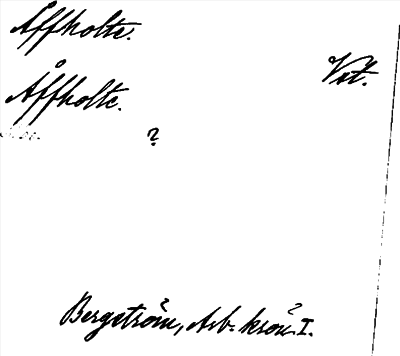 Åffholte.
Vst.
Åffholte.
?
Bergström, Arb. krön. I.